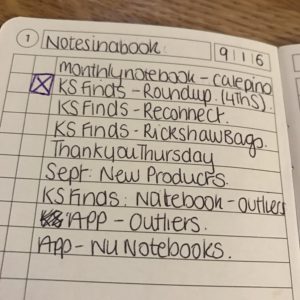 1 Notesinabook 9 1 1 6
monthly notebook - calepino
KS Finds - Roundup (4ths).
KS Finds - Reconnect.
KS Finds - Rickshaw Bags.
Thankyou Thursday
Sept: New Products.
KS Finds: Notebook - outliers
APP - Outliers.
App - Nu Notebooks.